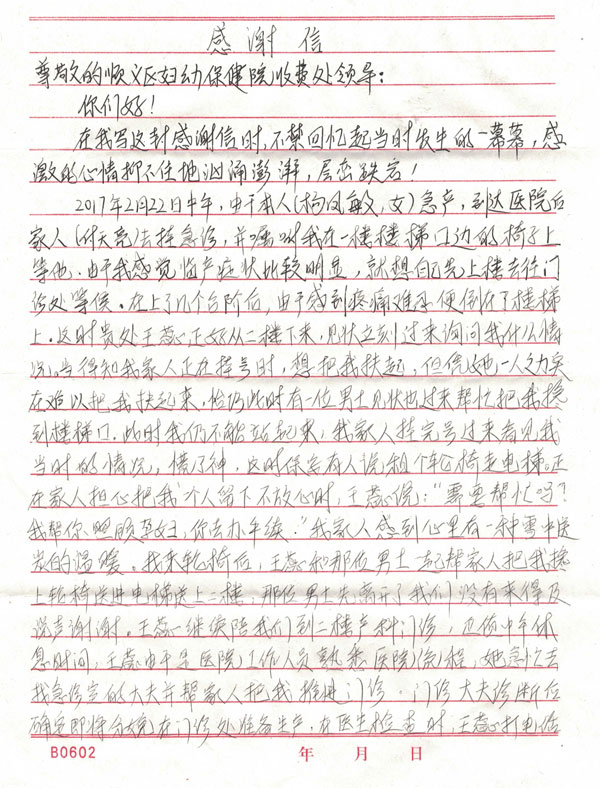 感谢信
尊敬的顺义区妇幼保健院收费处领导：
你们好！
在我写这封感谢信时，不禁回忆起当时发生的一幕幕，感
激的心情抑不住地汹涌澎湃，层峦跌宕！
2017年2月22日中午，由于本人（杨凤敏，女）急产，到达医院后
家人（付天亮）去挂急诊，并嘱咐我在一楼楼梯口边的椅子上
等他。由于我感觉临产症状比较明显，就想自己先上楼去往门
诊处等候。在上了几个台阶后，由于感到疼痛难忍便倒在了楼梯
上。这时贵处王蕊正好从二楼下来，见状立刻过来询问我什么情
况，当得知我家人正在挂号时，想把我扶起，但凭她一人之力实
在难以把我扶起来，恰巧此时有一位男士见状也过来帮忙把我搀
到楼梯口。此时我仍不能站起来，我家人挂完号过来看见我
当时的情况，慌了神，这时保安有人说租个轮椅走电梯。正
在家人担心把我一个人留下不放心时，王蕊说：“需要帮忙吗？
我帮你照顾孕妇，你去办手续。”我家人感到心里有一种雪中送
炭的温暖。找来轮椅后，王蕊和那位男士一起帮家人把我搀
上轮椅送进电梯送上二楼，那位男士先离开了我们没有来得及
说声谢谢。王蕊继续陪我们到二楼产科门诊，正值中午休
息时间，王蕊由于是医院工作人员熟悉医院流程，她急忙去
找急诊室的大夫并帮家人把我推进门诊。门诊大夫诊断后
确定即将分娩在门诊处准备生产，在医生检查时，王蕊打电话
B0602
年 月 日